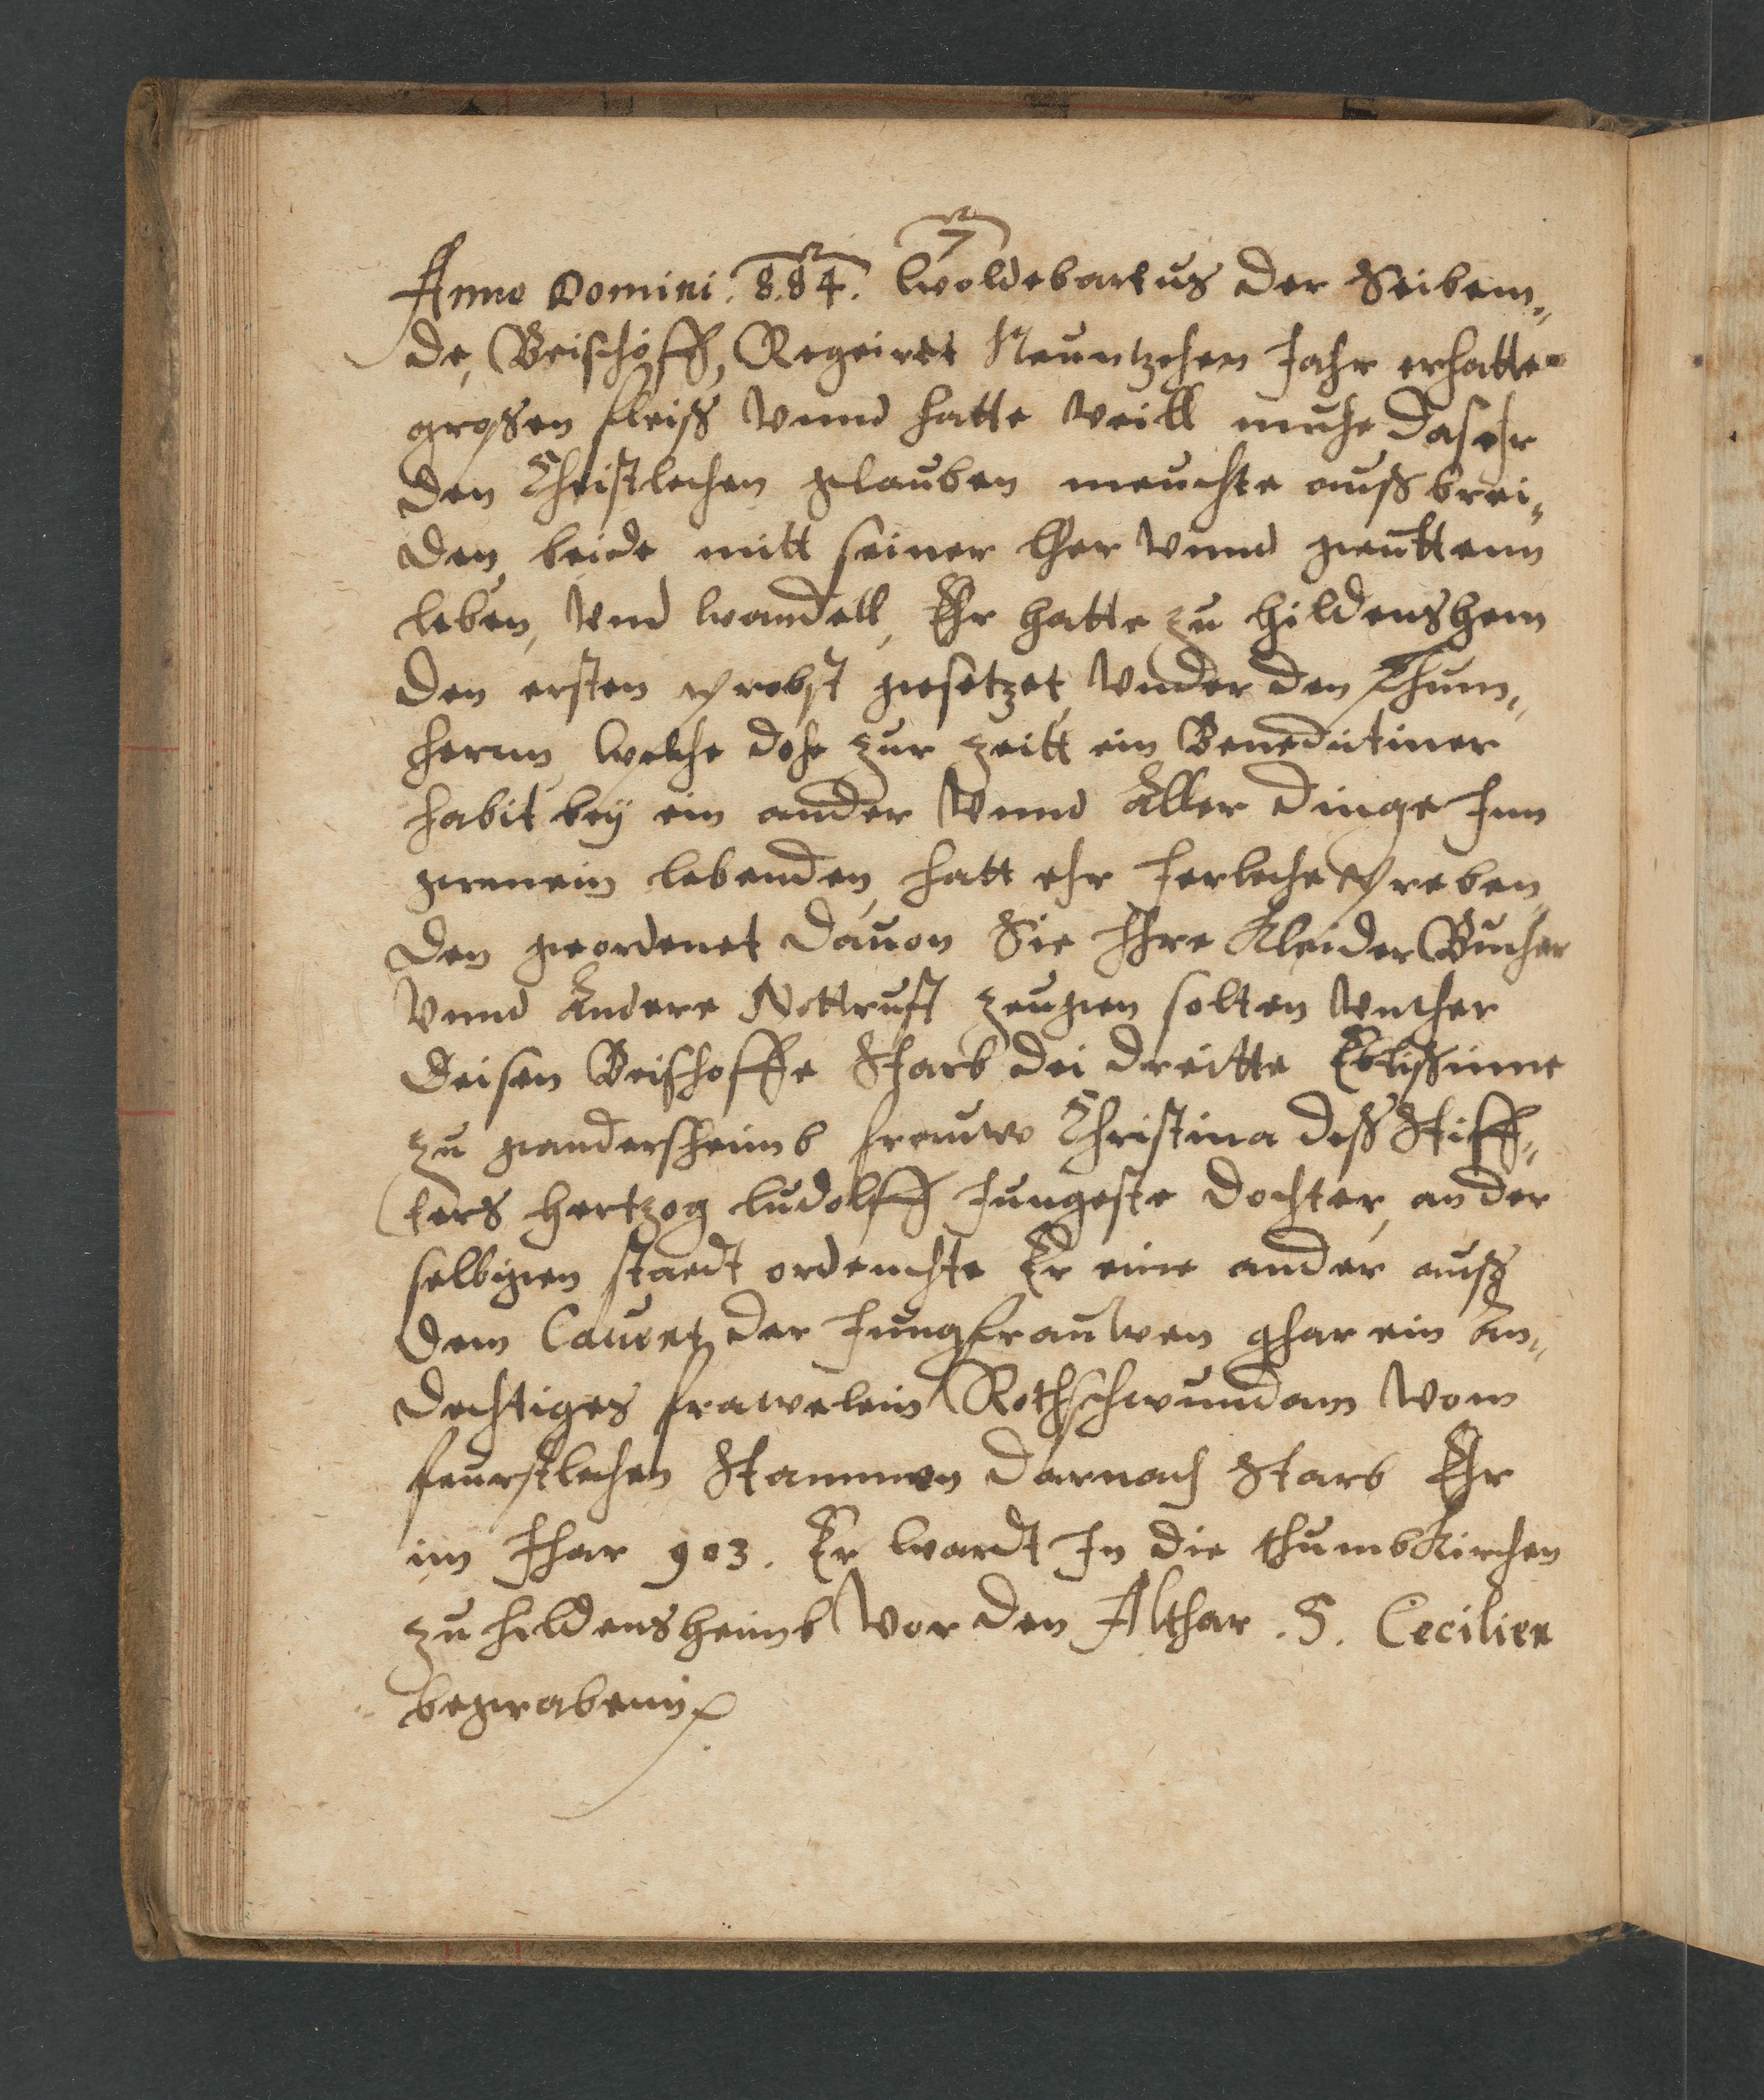 7
Anno Domini. 884. Woldebartus der Seiben„
de, Beischoff, Regeiret Neuntzehen Jahr er hatte
grossen fleiss Vnnd hatte Veill muhe Das ehr
den Christlechen glauben meuchte auss brei„
den beide mitt seiner lher Vnnd geuttenn
leben, Vnd wandell, Ehr hatte zu Hildensheim
den ersten Probst gesetzet Vnder den Thum„
hernn welche dohe zur zeitt ein Benedictiner
habit bey ein ander Vnnd Aller dinge Jnn
gemein lebenden, hatt ehr Jerleche Preben„
den geordenet Dauon Sie Jhre Kleider Bucher
Vnnd Andere Nottruft zeugen solten Vnther
deisen Beischoffe Starb dei dreitte Ebtissinne
zu gandersheimb frauwe Christina dess Stiff„
ters Hertzog Ludolff Jungeste Dochter, an der
selbigen staedt ordenchte Er eine ander auss
dem Couent der Jungfrauwen ghar ein An„
dechtiges frawelein Rothschwundam Vom
feurstlechen Stammen Darnach Starb Ehr
im Jhar 903. Er wardt Jn die thumbkirchen
zu Hildensheimb Vor den Althar .S. Cecilien
begrabenn